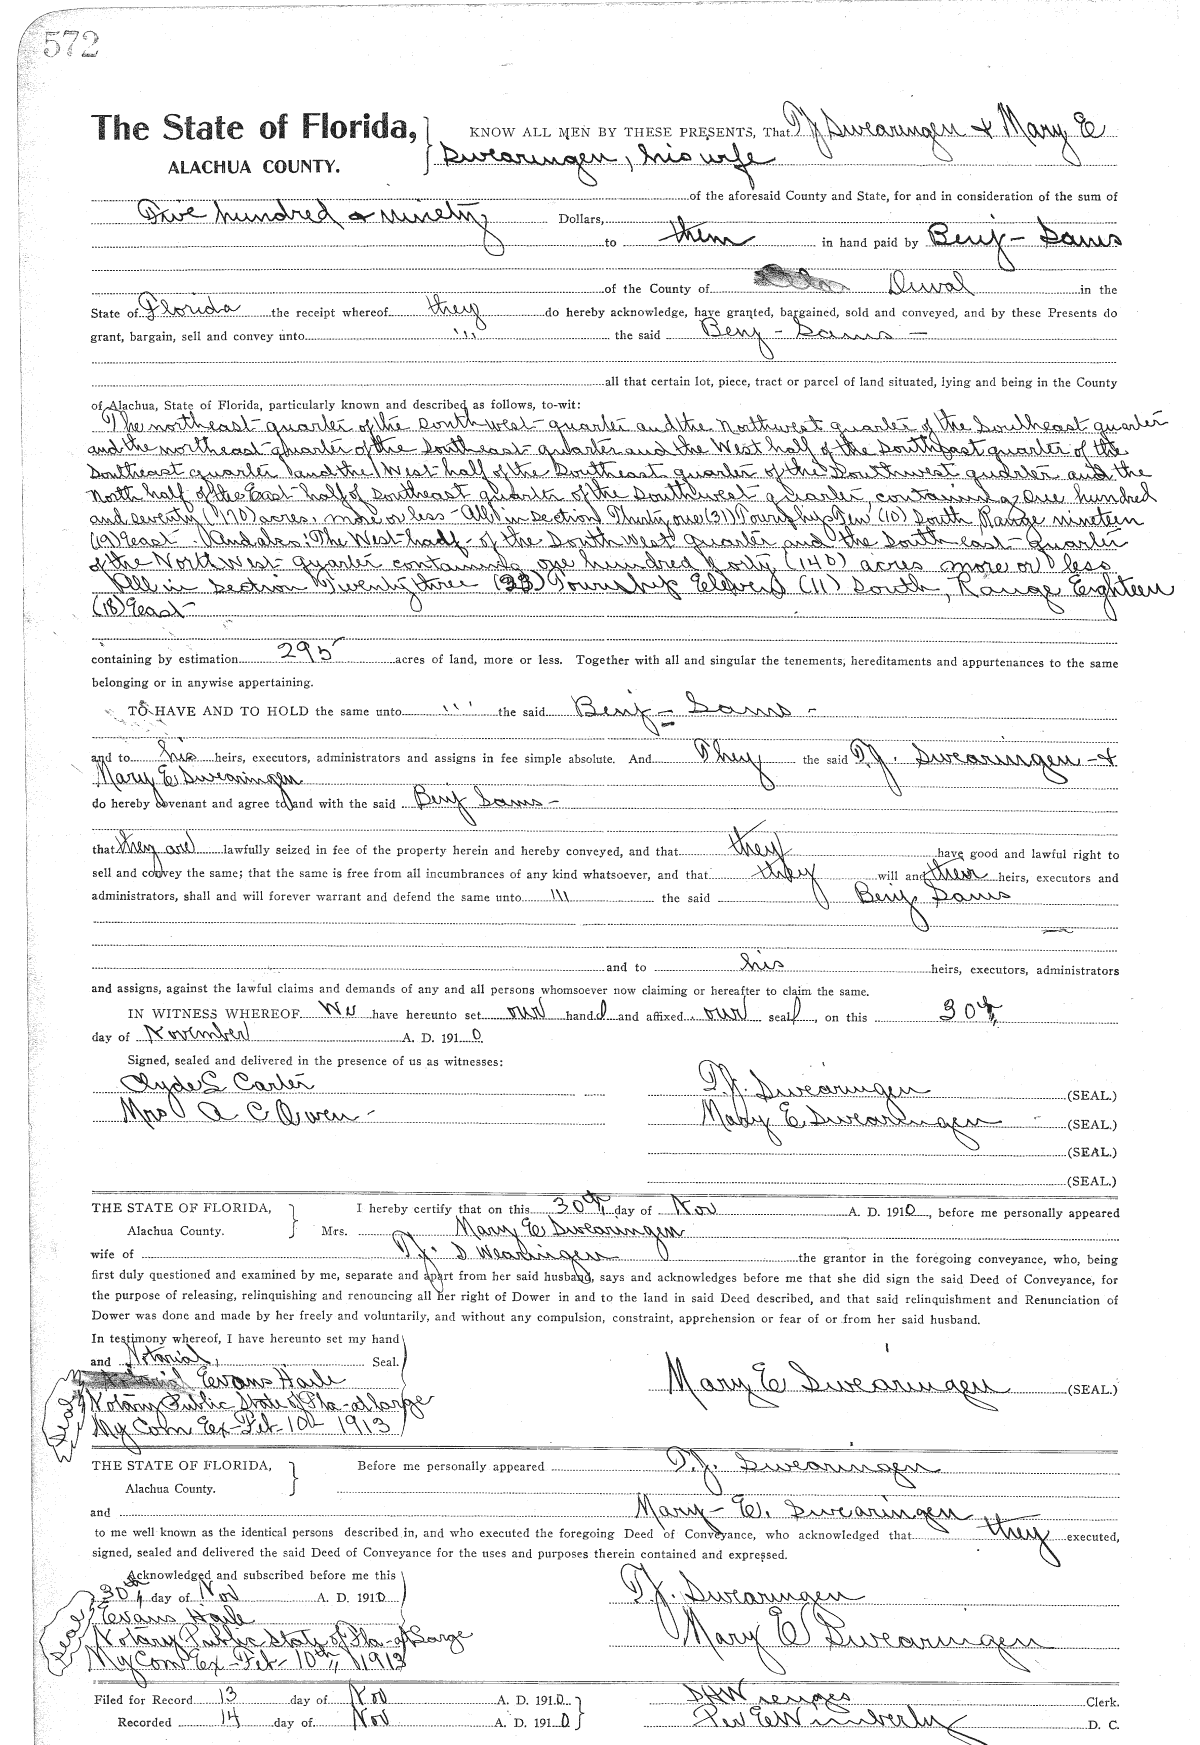 572
The State of Florida, } KNOW ALL MEN BY THESE PRESENTS, That T.J. Swearingen & Mary E
ALACHUA COUNTY. Swearingen, his wife
of the aforesaid County and State, for and in consideration of the sum of
Five hundred & ninety Dollars,
to them in hand paid by Benj- Sams
of the County of Duval in the
State of Florida the receipt whereof they do hereby acknowledge, have granted, bargained, sold and conveyed, and by these Presents do
grant, bargain, sell and convey unto ''' the said Benj- Sams -
all that certain lot, piece, tract or parcel of land situated, lying and being in the County
of Alachua, State of Florida, particularly known and described as follows, to-wit:
The northeast quarter of the southwest quarter and the Northwest quarter of the Southeast quarter
and the northeast quarter of the Southeast quarter and the West half of the Southeast quarter of the
Southeast quarter and the West half of the Southeast quarter of the Southwest quarter and the
North half of the East half of Southeast quarter of the Southwest quarter, containing One hundred
and seventy (170) acres, more or less - All in section Thirty one (31) Township Ten (10) South Range nineteen
(19) east. And also: The West half - of the Southwest quarter and the South-east quarter
of the North West quarter containing one hundred & forty (140) acres more or less
All in section Twenty three (23) Township Eleven (11) South, Range Eighteen
(18) East
containing by estimation 295 acres of land, more or less. Together with all and singular the tenements, hereditaments and appurtenances to the same
belonging or in anywise appertaining.
TO HAVE AND TO HOLD the same unto ''' the said Benj- Sams -
and to his heirs, executors, administrators and assigns in fee simple absolute. And They the said T.J. Swearingen - &
Mary E Swearingen
do hereby covenant and agree to and with the said Benj Sams -
that they are lawfully seized in fee of the property herein and hereby conveyed, and that they have good and lawful right to
sell and convey the same; that the same is free from all incumbrances of any kind whatsoever, and that they will and their heirs, executors and
administrators, shall and will forever warrant and defend the same unto ''' the said Benj. Sams
and to his heirs, executors, administrators
and assigns, against the lawful claims and demands of any and all persons whomsoever now claiming or hereafter to claim the same.
IN WITNESS WHEREOF We have hereunto set our hands and affixed our seals, on this 30th
day of November A. D. 1910.
Signed, sealed and delivered in the presence of us as witnesses:
Clyde L Carter T.J. Swearingen (SEAL.)
Mrs A C Owen - Mary E Swearingen (SEAL.)
(SEAL.)
(SEAL.)
THE STATE OF FLORIDA, } I hereby certify that on this 30th day of Nov A. D. 1910, before me personally appeared
Alachua County. Mrs. Mary E Swearingen
wife of T.J. Swearingen the grantor in the foregoing conveyance, who, being
first duly questioned and examined by me, separate and apart from her said husband, says and acknowledges before me that she did sign the said Deed of Conveyance, for
the purpose of releasing, relinquishing and renouncing all her right of Dower in and to the land in said Deed described, and that said relinquishment and Renunciation of
Dower was done and made by her freely and voluntarily, and without any compulsion, constraint, apprehension or fear of or from her said husband.
In testimony whereof, I have hereunto set my hand
and Notarial, Seal.
Evans Haile Mary E Swearingen (SEAL.)
Seal Notary Public State of Fla - at large
My Com Ex - Feb - 10th 1913
THE STATE OF FLORIDA, } Before me personally appeared T.J. Swearingen
Alachua County.
and Mary - E. Swearingen
to me well known as the identical persons described in, and who executed the foregoing Deed of Conveyance, who acknowledged that they executed,
signed, sealed and delivered the said Deed of Conveyance for the uses and purposes therein contained and expressed.
Acknowledged and subscribed before me this
30th day of Nov A. D. 1910 T.J. Swearingen
Seal Evans Haile
Notary Public State of Fla - at Large Mary E Swearingen
My Com Ex - Feb - 10th, 1913
Filed for Record 13 day of Nov A. D. 1910. Clerk.
Recorded 14 day of Nov A. D. 1910 Per E Wimberly D. C.